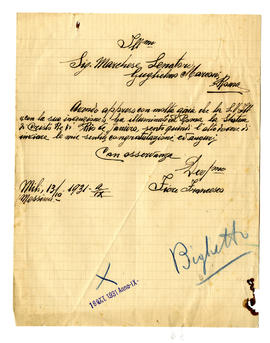 Ill.mo
Sig. Marchese Senatore
Guglielmo Marconi
Roma
Avendo appreso con molta gioia che la S. V. Ill.
con la sua invenzione, ha illuminato da Roma la Statua
di Cristo Re di Rio de Janeiro, sento quindi il dovere di
inviare le mie sentite congratulazioni ed auguri
Con osservanza
Dev/mo
Mili, 13/10 1931 - IX
Fiore Francesco
Messina
Biglietto
X
16 OTT. 1931 Anno IX